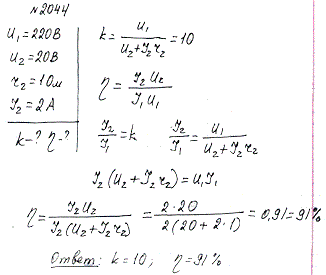 №2044
U₁=220В
U₂=20В
r₂=1Ом
I₂=2А
k-? η-?
k = U₁/(U₂+I₂r₂) = 10
η = I₂U₂/(I₁U₁)
I₂/I₁ = k    I₂/I₁ = U₁/(U₂+I₂r₂)
I₂(U₂+I₂r₂) = U₁I₁
η = I₂U₂/(I₂(U₂+I₂r₂)) = 2·20/(2(20+2·1)) = 0,91=91%
Ответ: k=10; η=91%